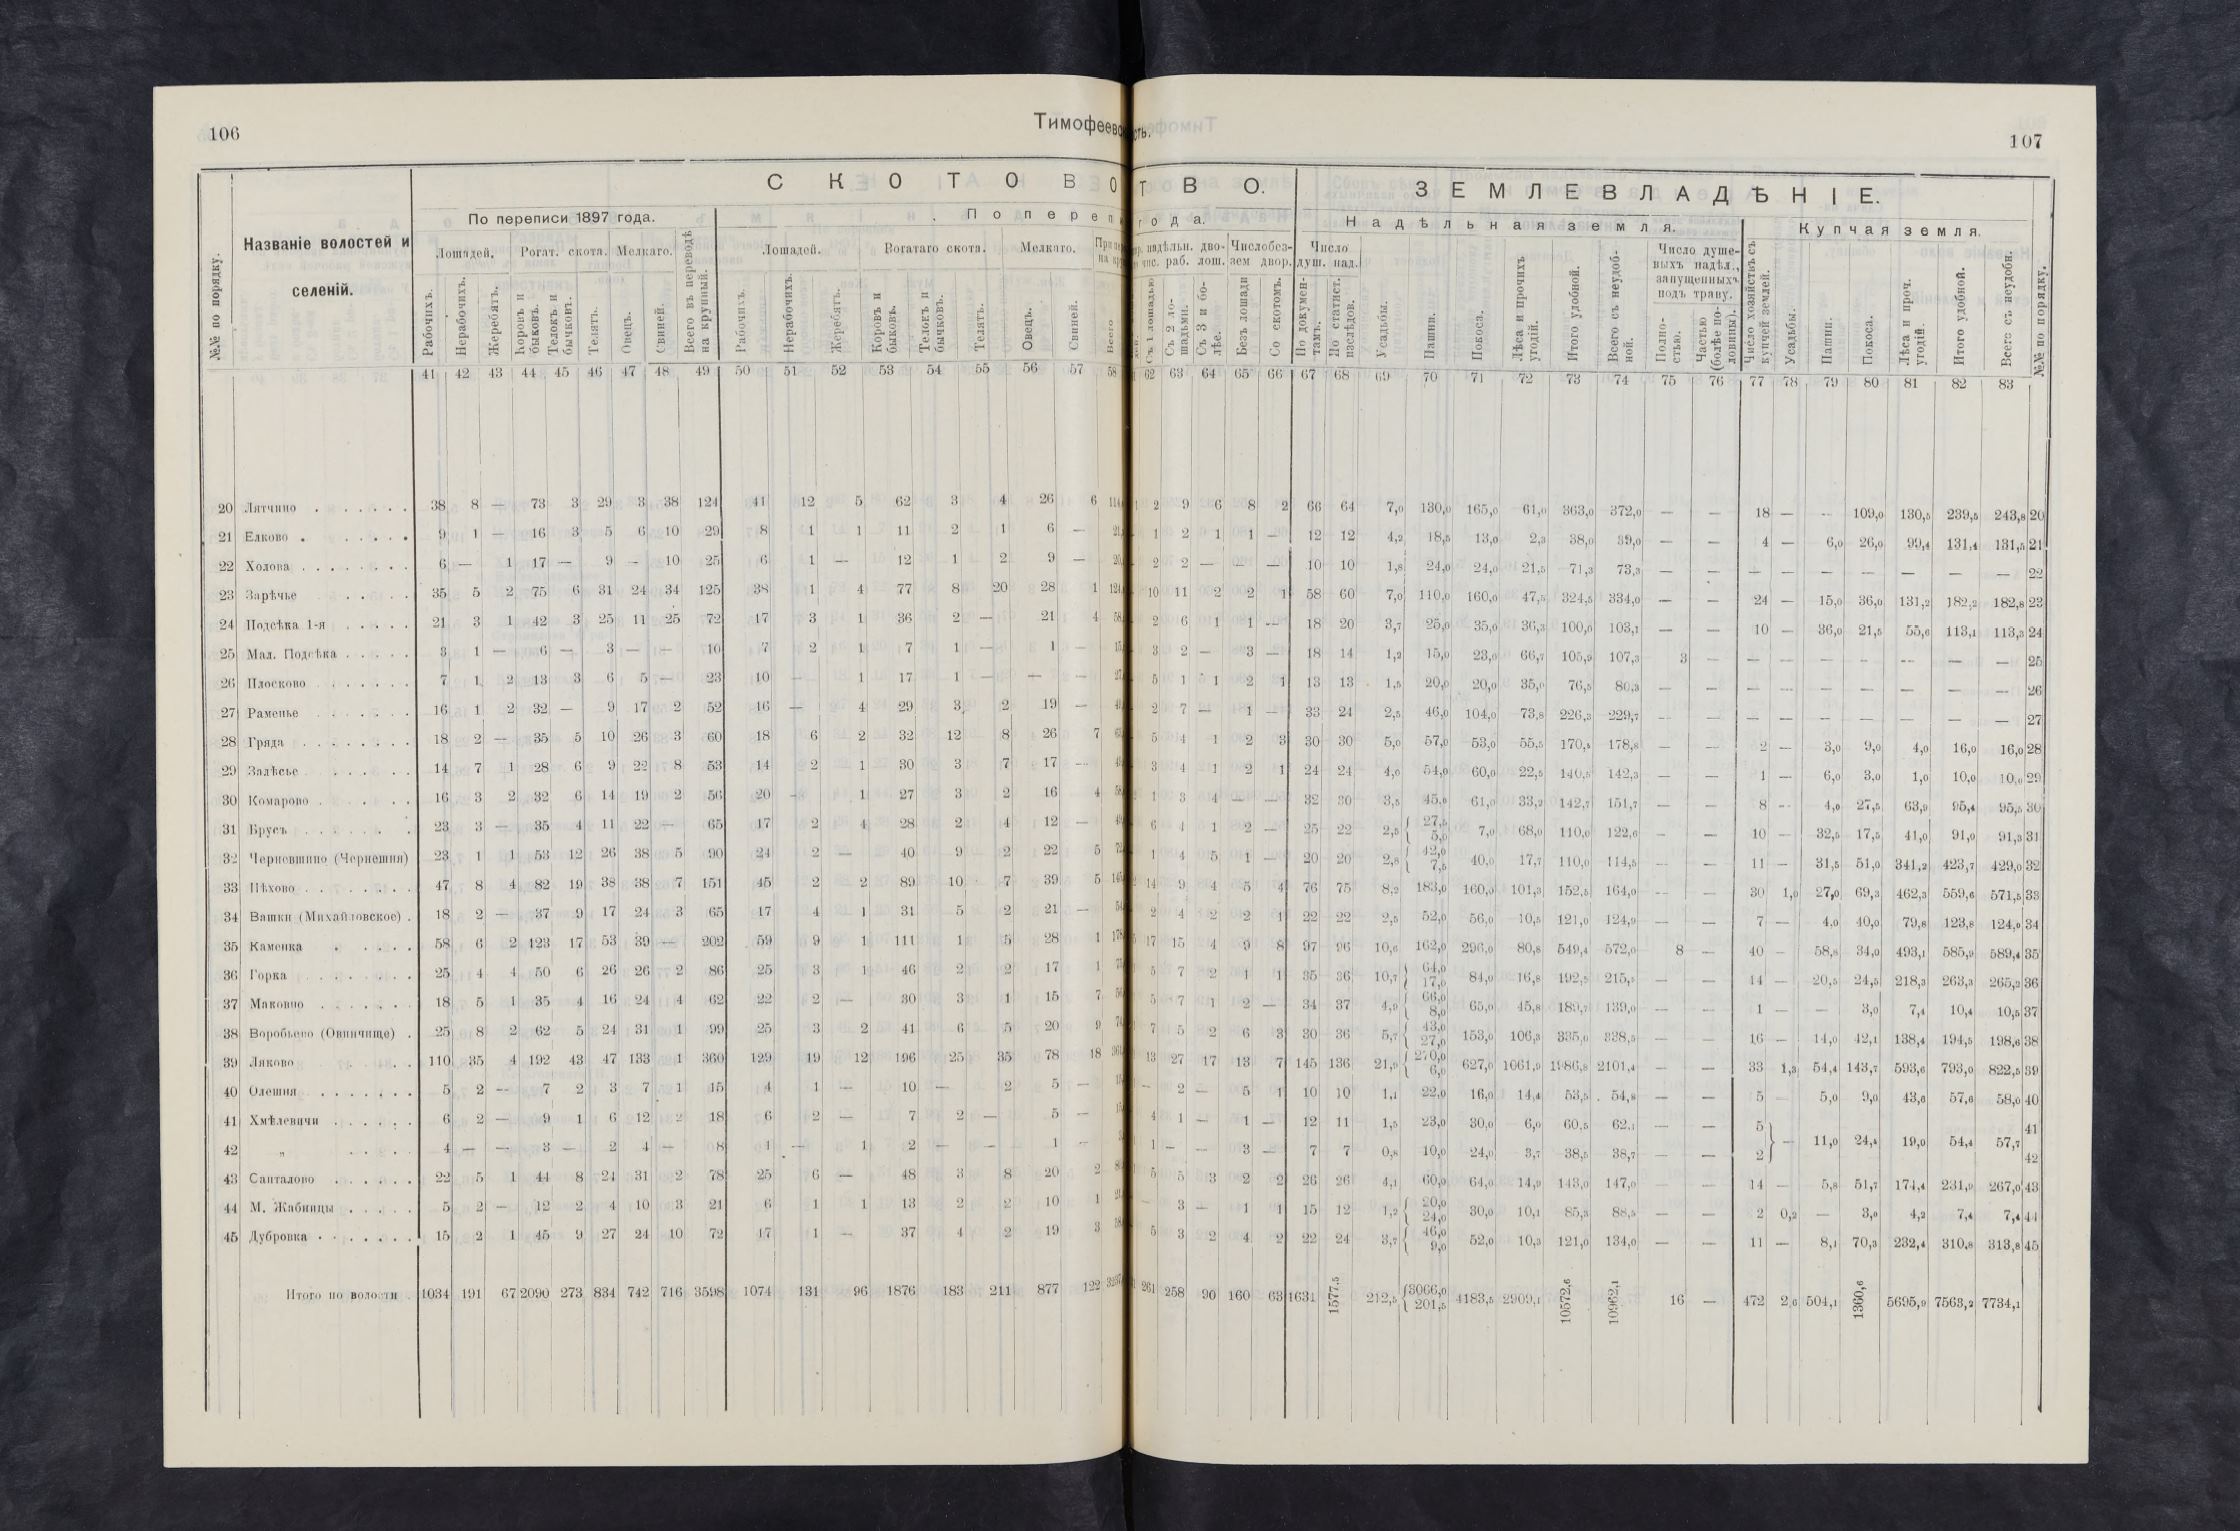 106
Тимофеевс сть.
107
№№ по порядку. Названіе волостей и селеній. СКОТОВО ТВО. ЗЕМЛЕВЛАДѢНІЕ. №№ по порядку.
По переписи 1897 года. По перепи года. Надѣльная земля. Купчая земля.
Лошадей. Рогат. скота. Мелкаго. Всего въ переводѣ на крупный. Лошадей. Рогатаго скота. Мелкаго. надѣльн. дво- чис. раб. лош. Число без- зем двор. Число душ. над. Число душе- выхъ надѣл., запущенныхъ подъ траву.
Рабочихъ. Нерабочихъ. Жеребятъ. Коровъ и быковъ. Телокъ и бычковъ. Телятъ. Овецъ. Свиней. Рабочихъ. Нерабочихъ. Жеребятъ. Коровъ и быковъ. Телокъ и бычковъ. Телятъ. Овецъ. Свиней. Всего Съ 1 лошадью Съ 2 ло- шадьми. Съ 3 и бо- лѣе. Безъ лошади Со скотомъ. По докумен- тамъ. По статист. изслѣдов. Усадьбы. Пашни. Покоса. Лѣса и прочихъ угодій. Итого удобной. Всего съ неудоб- ной. Полно- стью. Частью (болѣе по- ловины). Число хозяйствъ съ купчей землей. Усадьбы. Пашни. Покоса. Лѣса и проч. угодій. Итого удобной. Всего съ неудобн.
41 42 43 44 45 46 47 48 49 50 51 52 53 54 55 56 57 58 62 63 64 65 66 67 68 69 70 71 72 73 74 75 76 77 78 79 80 81 82 83
20 Лятчино 38 8 — 73 3 29 3 38 124 41 12 5 62 3 4 26 6 2 9 6 8 2 66 64 7,0 130,0 165,0 61,0 363,0 372,0 — — 18 — — 109,0 130,5 239,5 243,8 20
21 Елково 9 1 — 16 3 5 6 10 29 8 1 1 11 2 1 6 — 1 2 1 1 — 12 12 4,2 18,5 13,0 2,3 38,0 39,0 — — 4 — 6,0 26,0 99,4 131,4 131,5 21
22 Холова 6 — 1 17 — 9 — 10 25 6 1 — 12 1 2 9 — 2 2 — — — 10 10 1,8 24,0 24,0 21,5 71,3 73,3 — — — — — — — — — 22
23 Зарѣчье 35 5 2 75 6 31 24 34 125 38 1 4 77 8 20 28 1 10 11 2 2 1 58 60 7,0 110,0 160,0 47,5 324,5 334,0 — — 24 — 15,0 36,0 131,2 182,2 182,8 23
24 Подсѣка 1-я 21 3 1 42 3 25 11 25 72 17 3 1 36 2 — 21 4 2 6 1 1 — 18 20 3,7 25,0 35,0 36,3 100,0 103,1 — — 10 — 36,0 21,5 55,6 113,1 113,3 24
25 Мал. Подсѣка 3 1 — 6 — 3 — — 10 7 2 1 7 1 — 1 — 3 2 — 3 — 18 14 1,2 15,0 23,0 66,7 105,9 107,3 3 — — — — — — — — 25
26 Плосково 7 1 2 13 3 6 5 — 23 10 — 1 17 1 — — — 5 1 1 2 1 13 13 1,5 20,0 20,0 35,0 76,5 80,3 — — — — — — — — — 26
27 Раменье 16 1 2 32 — 9 17 2 52 16 — 4 29 3 2 19 — 2 7 — 1 — 33 24 2,5 46,0 104,0 73,8 226,3 229,7 — — — — — — — — — 27
28 Гряда 18 2 — 35 5 10 26 3 60 18 6 2 32 12 8 26 7 5 4 1 2 3 30 30 5,0 57,0 53,0 55,5 170,5 178,8 — — 2 — 3,0 9,0 4,0 16,0 16,0 28
29 Залѣсье 14 7 1 28 6 9 22 8 53 14 2 1 30 3 7 17 — 3 4 1 2 1 24 24 4,0 54,0 60,0 22,5 140,5 142,3 — — 1 — 6,0 3,0 1,0 10,0 10,0 29
30 Комарово 16 3 2 32 6 14 19 2 56 20 — 1 27 3 2 16 4 1 3 4 — — 32 30 3,5 45,0 61,0 33,2 142,7 151,7 — — 8 — 4,0 27,5 63,9 95,4 95,5 30
31 Брусъ 23 3 — 35 4 11 22 — 65 17 2 4 28 2 4 12 — 6 4 1 2 — 25 22 2,5 { 27,5 5,0 7,0 68,0 110,0 122,6 — — 10 — 32,5 17,5 41,0 91,0 91,3 31
32 Черневшино (Чернешня) 23 1 1 53 12 26 38 5 90 24 2 — 40 9 2 22 5 1 4 5 1 — 20 20 2,8 { 42,0 7,5 40,0 17,7 110,0 114,5 — — 11 — 31,5 51,0 341,2 423,7 429,0 32
33 Пѣхово 47 8 4 82 19 38 38 7 151 45 2 2 89 10 7 39 5 14 9 4 5 4 76 75 8,2 183,0 160,0 101,3 152,5 164,0 — — 30 1,0 27,0 69,3 462,3 559,6 571,5 33
34 Вашки (Михайловское) 18 2 — 37 9 17 24 3 65 17 4 1 31 5 2 21 — 2 4 2 2 1 22 22 2,5 52,0 56,0 10,5 121,0 124,9 — — 7 — 4,0 40,0 79,8 123,8 124,0 34
35 Каменка 58 6 2 123 17 53 39 — 202 59 9 1 111 1 5 28 1 17 15 4 9 8 97 96 10,6 162,0 296,0 80,8 549,4 572,0 8 — 40 — 58,8 34,0 493,1 585,9 589,4 35
36 Горка 25 4 4 50 6 26 26 2 86 25 3 1 46 2 2 17 1 5 7 2 1 1 35 36 10,7 { 64,0 17,0 84,0 16,8 192,5 215,5 — — 14 — 20,5 24,5 218,3 263,3 265,2 36
37 Маковно 18 5 1 35 4 16 24 4 62 22 2 — 30 3 1 15 7 5 7 1 2 — 34 37 4,9 { 66,0 8,0 65,0 45,8 189,7 139,0 — — 1 — — 3,0 7,4 10,4 10,5 37
38 Воробьево (Овинчище) 25 8 2 62 5 24 31 1 99 25 3 2 41 6 5 20 9 7 5 2 6 3 30 36 5,7 { 43,0 27,0 153,0 106,3 335,0 338,5 — — 16 — 14,0 42,1 138,4 194,5 198,6 38
39 Ляково 110 35 4 192 43 47 133 1 360 129 19 12 196 25 35 78 18 13 27 17 13 7 145 136 21,9 { 270,0 6,0 627,0 1061,9 1986,8 2101,4 — — 33 1,3 54,4 143,7 593,6 793,0 822,5 39
40 Олешня 5 2 — 7 2 3 7 1 15 4 1 — 10 — 2 5 — — 2 — 5 1 10 10 1,1 22,0 16,0 14,4 53,5 54,8 — — 5 5,0 9,0 43,6 57,6 58,0 40
41 Хмѣлевичи 6 2 — 9 1 6 12 2 18 6 2 — 7 2 — 5 — 4 1 — 1 — 12 11 1,5 23,0 30,0 6,0 60,5 62,1 — — 5 } — 11,0 24,4 19,0 54,4 57,7 41
42 „ 4 — — 3 — 2 4 — 8 1 — 1 2 — — 1 — 1 — — 3 — 7 7 0,8 10,0 24,0 3,7 38,5 38,7 — — 2 42
43 Санталово 22 5 1 44 8 24 31 2 78 25 6 — 48 3 8 20 2 5 5 3 2 2 26 26 4,1 60,0 64,0 14,9 143,0 147,0 — — 14 — 5,8 51,7 174,4 231,9 267,0 43
44 М. Жабницы 5 2 — 12 2 4 10 3 21 6 1 1 13 2 2 10 1 — 3 — 1 1 15 12 1,2 { 20,0 24,0 30,0 10,1 85,3 88,5 — — 2 0,2 — 3,0 4,2 7,4 7,4 44
45 Дубровка 15 2 1 45 9 27 24 10 72 17 1 — 37 4 2 19 3 5 3 2 4 2 22 24 3,7 { 46,0 9,0 52,0 10,3 121,0 134,0 — — 11 — 8,1 70,3 232,4 310,8 313,8 45
Итого по волости 1034 191 67 2090 273 834 742 716 3598 1074 131 96 1876 183 211 877 122 261 258 90 160 63 1631 1577,5 212,5 { 3066,0 201,5 4183,5 2909,1 10572,6 10962,1 16 — 472 2,6 504,1 1360,6 5695,9 7563,2 7734,1